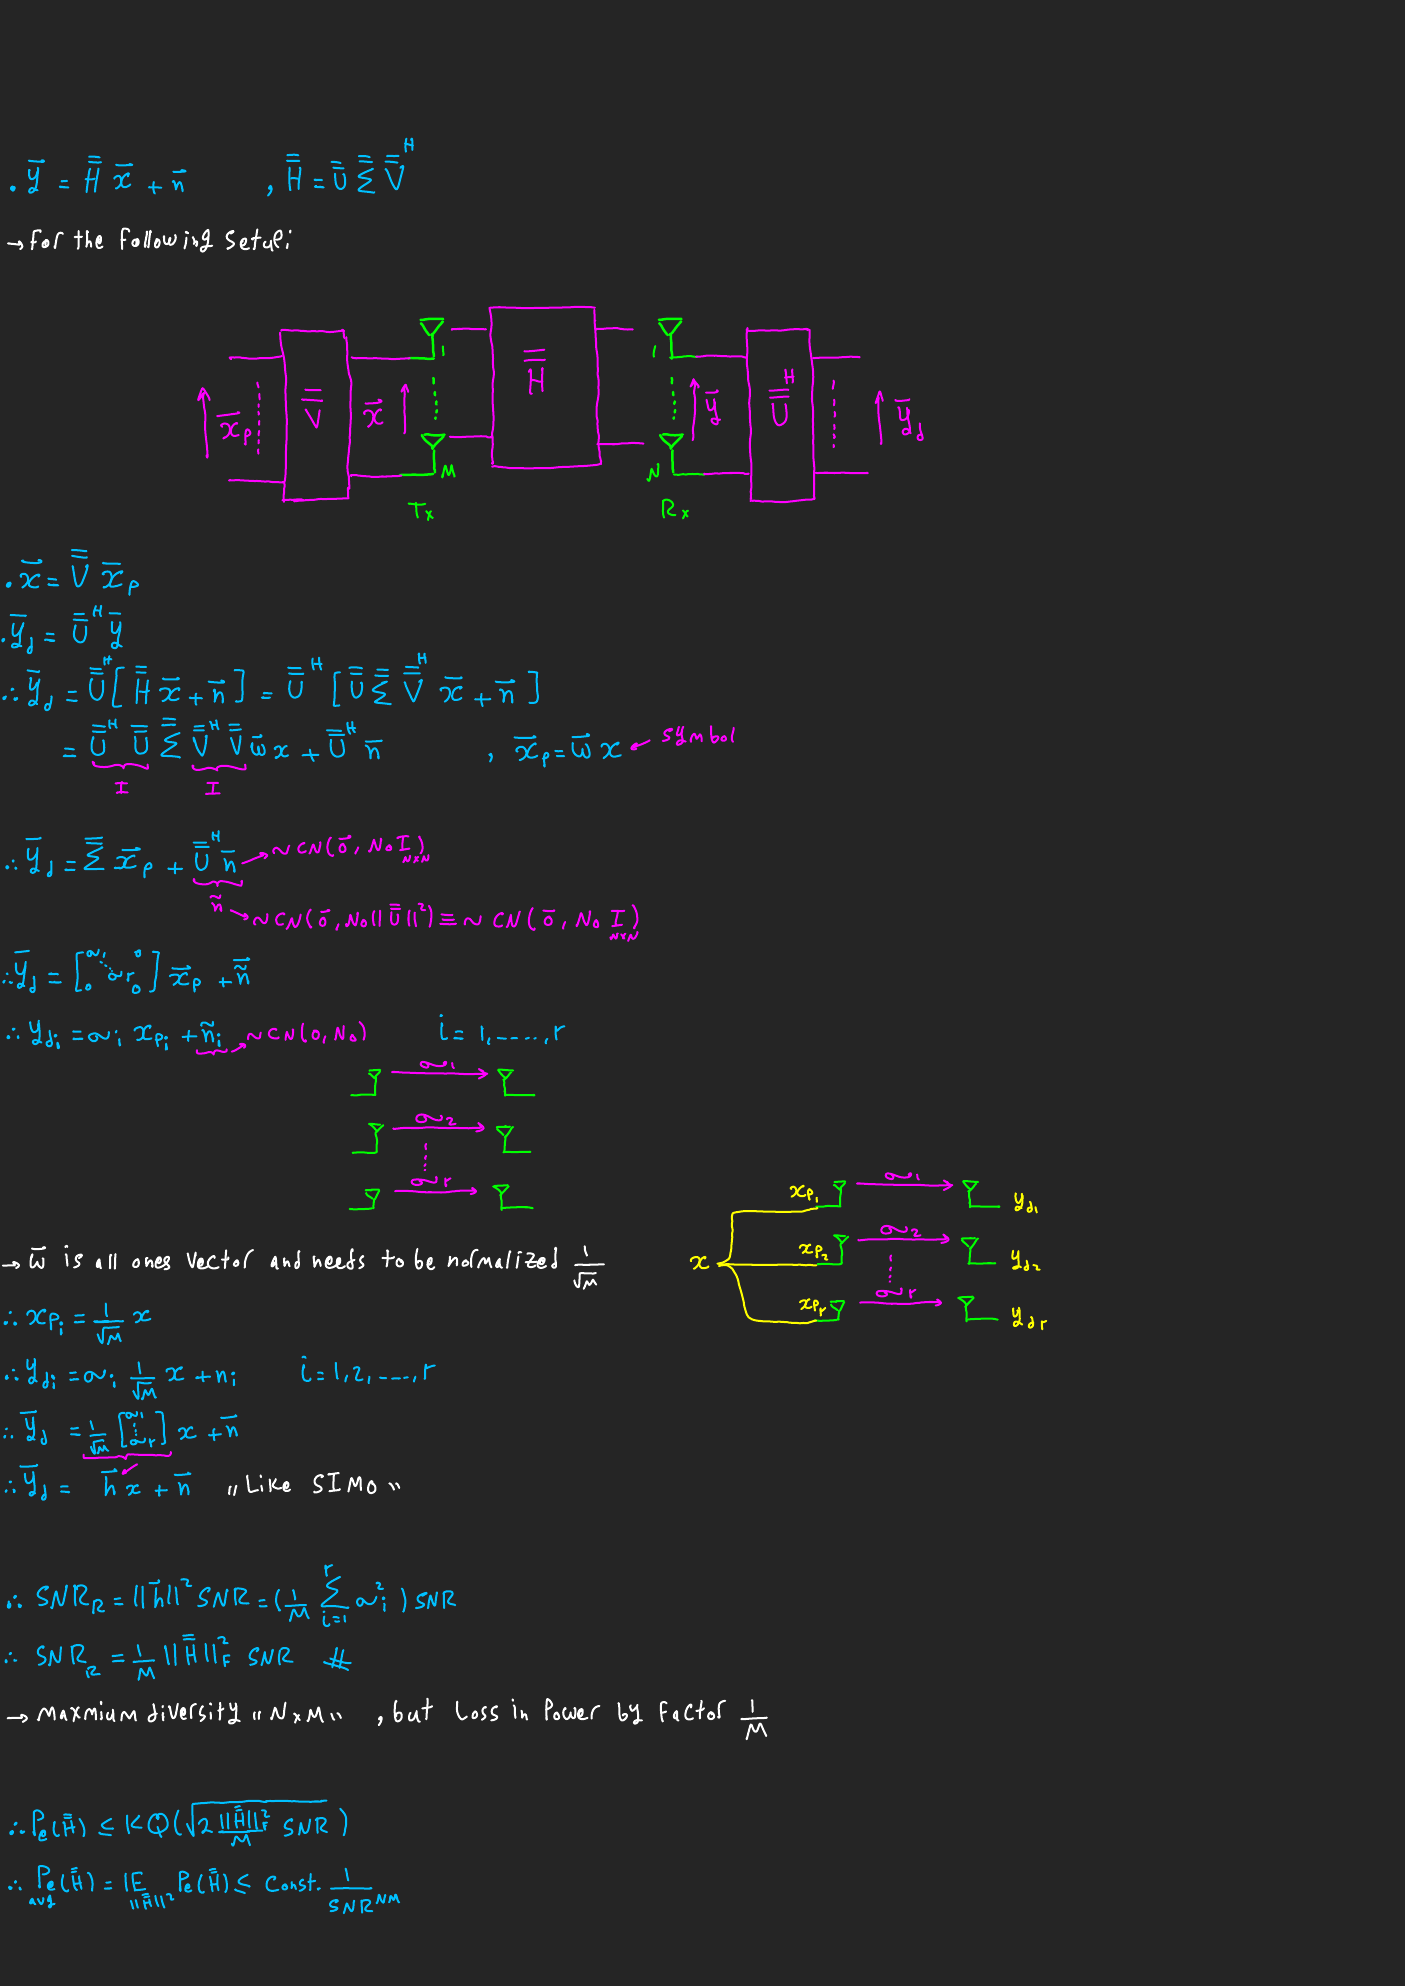 . y̅ = H̿ x̅ + n̅ , H̿ = U̿ Σ̿ V̿^H
→ for the following setup:
x̅_p V̿ x̅ 1 M Tx H̿ 1 N Rx y̅ U̿^H y̅_d
. x̅ = V̿ x̅_p
. y̅_d = U̿^H y̅
∴ y̅_d = U̿^H [ H̿ x̅ + n̅ ] = U̿^H [ U̿ Σ̿ V̿^H x̅ + n̅ ]
= U̿^H U̿ Σ̿ V̿^H V̿ w̅ x + U̿^H n̅ , x̅_p = w̅ x ← symbol
I I
∴ y̅_d = Σ̿ x̅_p + U̿^H n̅ → ~ CN( o̅ , N₀ I_{N×N} )
ñ → ~ CN( o̅ , N₀ ||U̿||² ) ≡ ~ CN( o̅ , N₀ I_{N×N} )
∴ y̅_d = [ σ₁ 0 ⋱ σr 0 0 ] x̅_p + ñ̅
∴ y_{di} = σ_i x_{pi} + ñ_i → ~ CN(0, N₀) i = 1, ....., r
σ₁
σ₂
σr
x x_{p1} σ₁ y_{d1}
x_{p2} σ₂ y_{d2}
x_{pr} σr y_{dr}
→ w̅ is all ones vector and needs to be normalized 1/√M
∴ x_{pi} = 1/√M x
∴ y_{di} = σ_i 1/√M x + n_i i = 1, 2, ...., r
∴ y̅_d = 1/√M [ σ₁ ⋮ σr ] x + n̅
∴ y̅_d = h̅ x + n̅ "Like SIMO"
∴ SNR_R = ||h̅||² SNR = ( 1/M Σ_{i=1}^{r} σ_i² ) SNR
∴ SNR_R = 1/M ||H̿||²_F SNR #
→ maxmium diversity "N×M" , but Loss in Power by Factor 1/M
∴ Pe(H̿) ≤ K Q( √( 2 ||H̿||²_F / M SNR ) )
∴ Pe_avg(H̿) = 𝔼_{||H̿||²} Pe(H̿) ≤ const. 1/SNR^{NM}